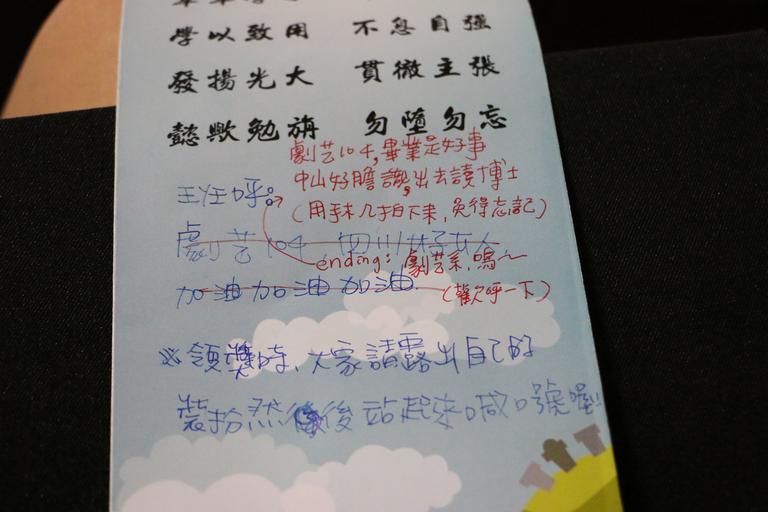 學以致用 不息自强
發揚光大 貫徹主張
懿歟勉旃 勿墮勿忘
劇芸104,畢業是好事
中山好膽識,出去讀博士
王任呼:
(用手机拍下来,免得忘記)
劇芸104 四川好女人
ending: 劇芸系,鳴~
加油加油加油.
(歡呼一下)
※領獎時、大家請露出自己的
裝扮然後後站起來喊口號喔!